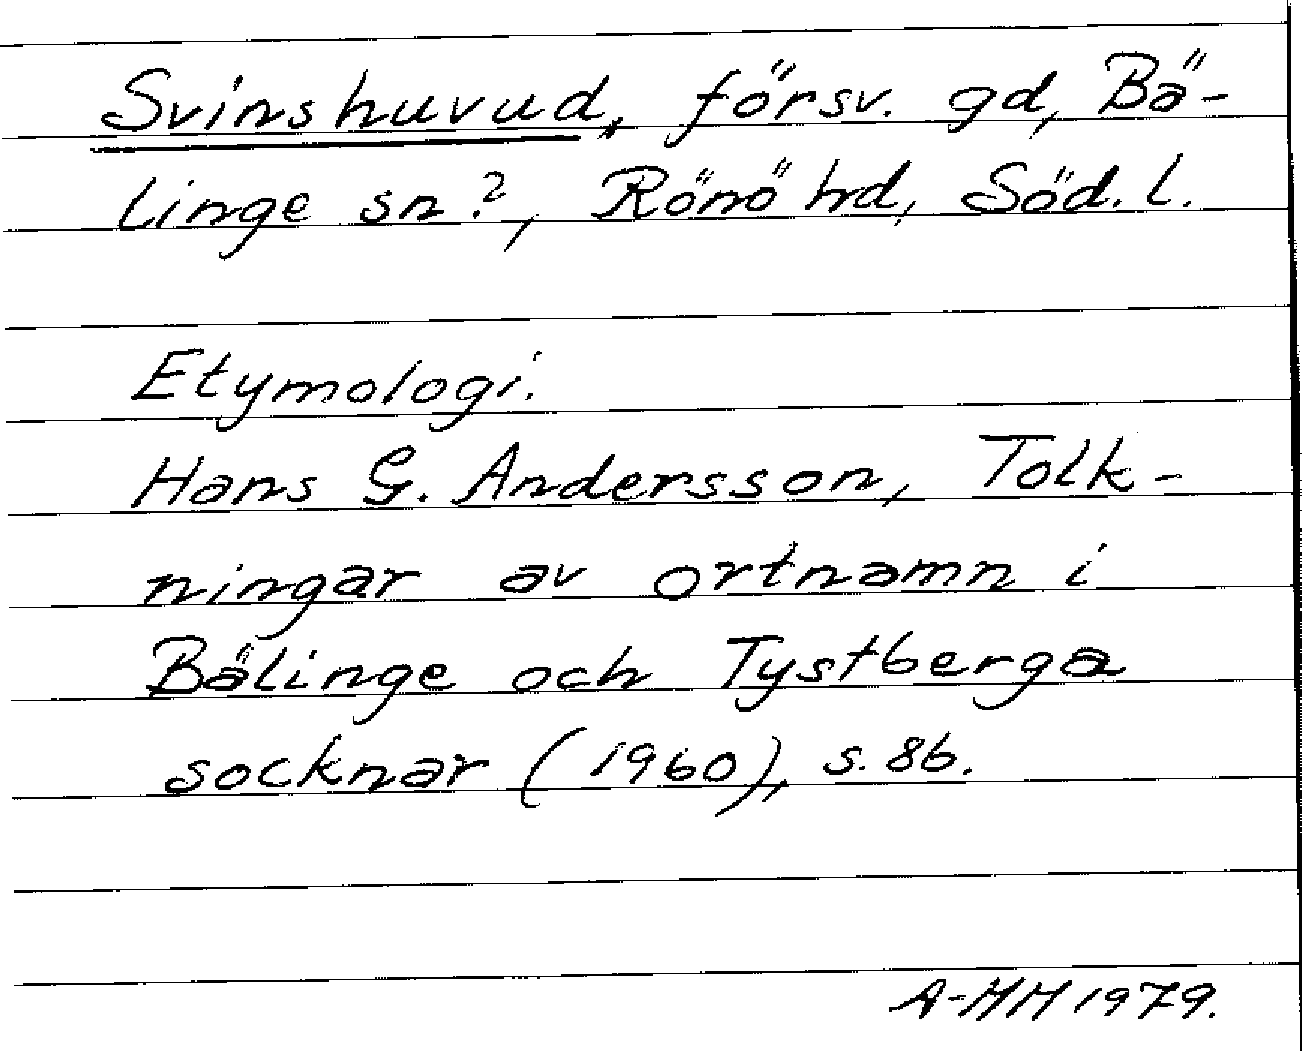 Svinshuvud, försv. gd, Bä-
linge sn?, Rönö hd, Söd. l.
Etymologi.
Hans G. Andersson, Tolk-
ningar av ortnamn i
Bälinge och Tystberga
socknar (1960), s. 86.
A-MM 1979.